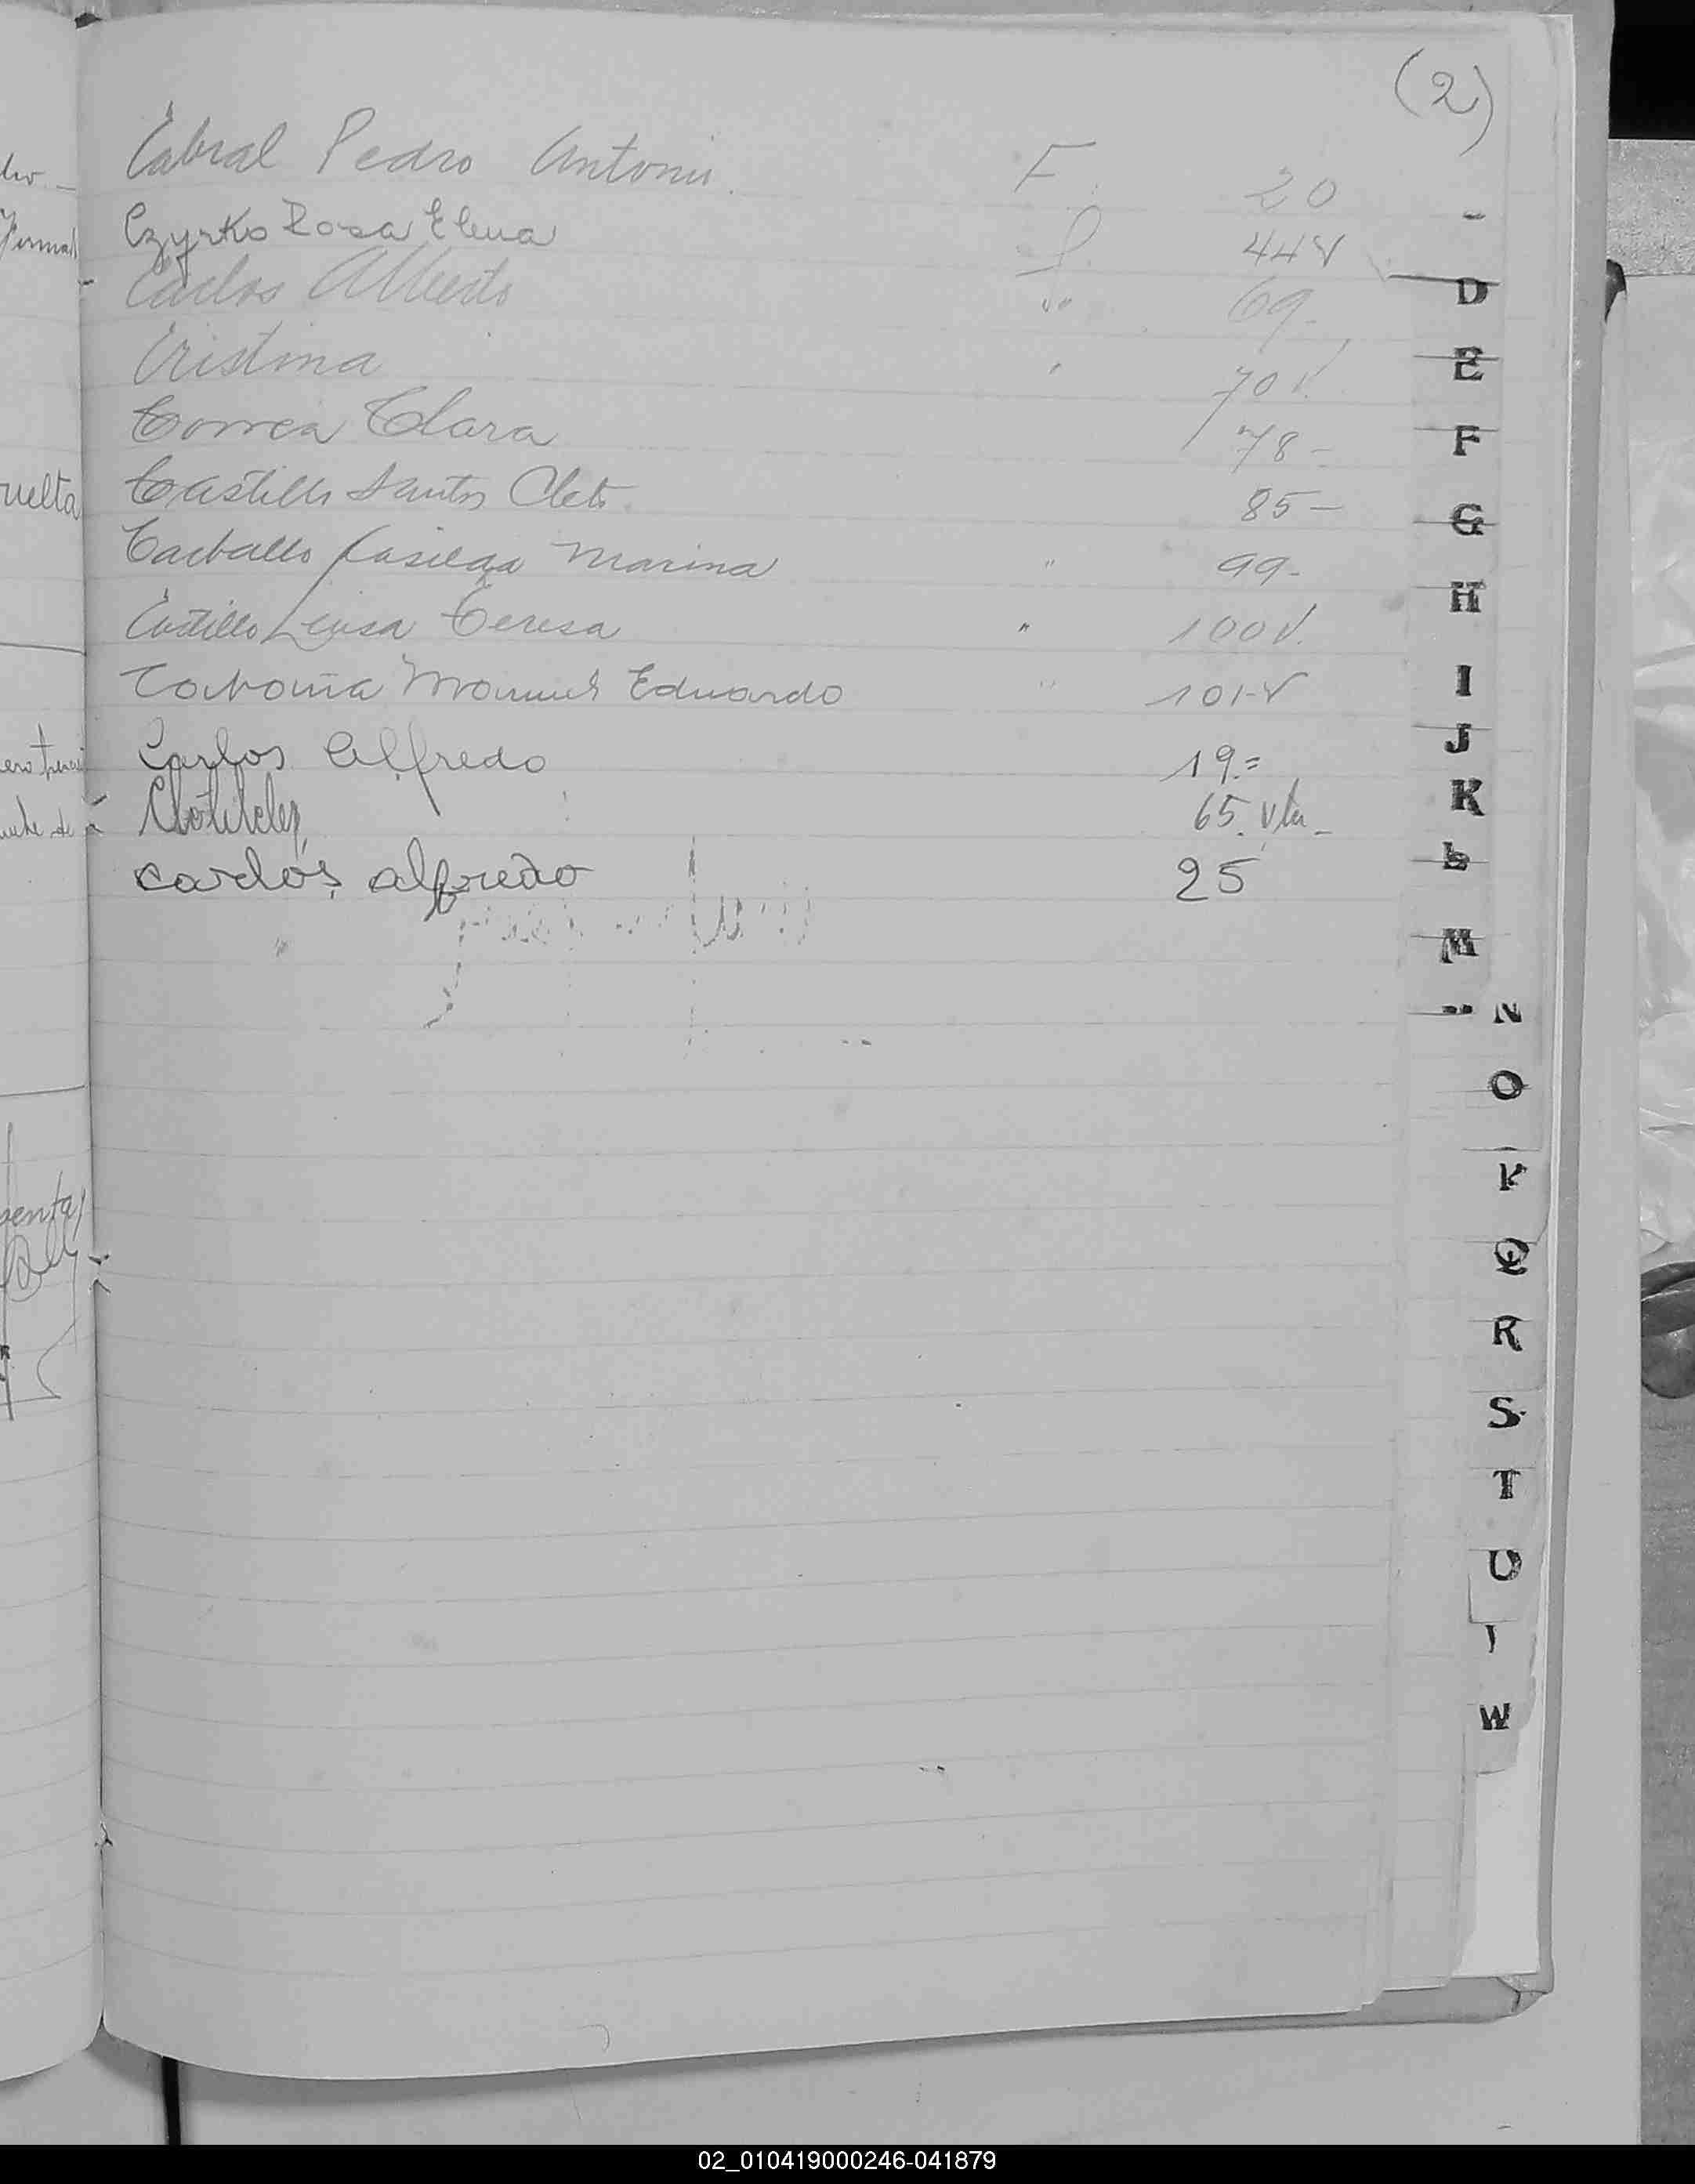 (2)
Cabral Pedro Antonio. F. 20
Czyrko Rosa Elena f. 44 V
Carlos Alberto " 69-
Cristina " 70 V.
Correa Clara 78-
Castillo Santos Cleto. 85-
Carballo Casilda Marina " 99-
Castillo Luisa Teresa " 100 V.
Manuel Eduardo " 101-V
Carlos Alfredo 19.=
65. vta-
Carlos, alfredo 25
D
E
F
G
H
I
J
K
L
M
N
O
P
Q
R
S
T
U
W
vuelta
02_010419000246-041879